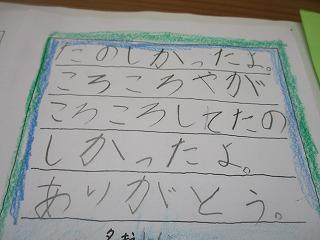 たのしかったよ。
ころころやが
ころころしてたの
しかったよ。
ありがとう。